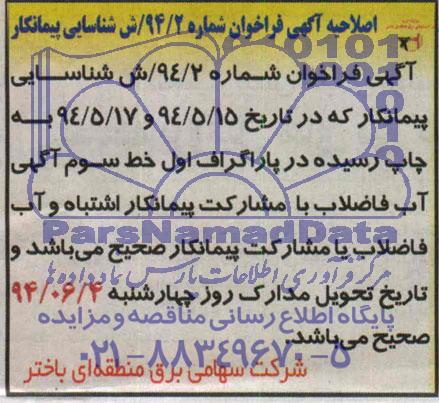 اصلاحیه آگهی فراخوان شماره ۹۴/۲/ش شناسایی پیمانکار
آگهی فراخوان شماره ۹۴/۲/ش شناسایی
پیمانکار که در تاریخ ۹۴/۵/۱۵ و ۹۴/۵/۱۷ به
چاپ رسیده در پاراگراف اول خط سوم آگهی
آب فاضلاب با مشارکت پیمانکار اشتباه و آب
ParsNamadData
فاضلاب یا مشارکت پیمانکار صحیح می‌باشد و
مرکز فرآوری اطلاعات پارس نماد داده ها
تاریخ تحویل مدارک روز چهارشنبه ۹۴/۰۶/۴
پایگاه اطلاع رسانی مناقصه و مزایده
صحیح می‌باشد.
۰۲۱-۸۸۳۴۹۶۷۰-۵
شرکت سهامی برق منطقه‌ای باختر